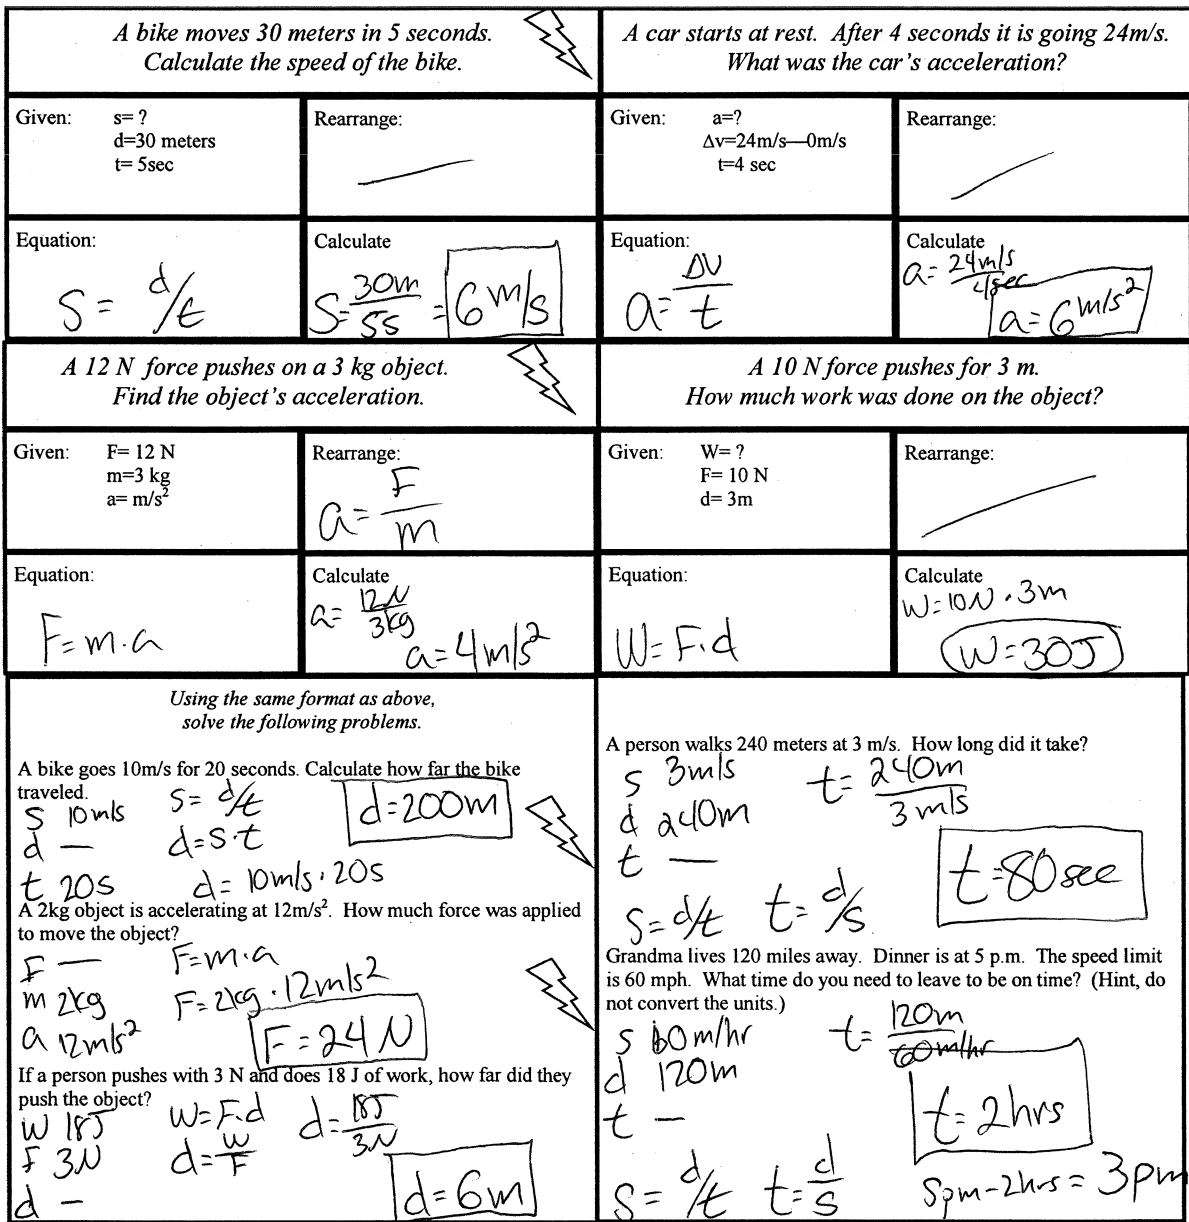 A bike moves 30 meters in 5 seconds.
Calculate the speed of the bike.
Given: s= ?
d=30 meters
t= 5sec
Rearrange:
Equation:
S = d/t
Calculate
S= 30m/5s = 6 m/s
A car starts at rest. After 4 seconds it is going 24m/s.
What was the car's acceleration?
Given: a=?
Δv=24m/s—0m/s
t=4 sec
Rearrange:
Equation:
a= ΔV/t
Calculate
a= 24m/s/4sec
a=6m/s²
A 12 N force pushes on a 3 kg object.
Find the object's acceleration.
Given: F= 12 N
m=3 kg
a= m/s²
Rearrange:
a= F/m
Equation:
F=m·a
Calculate
a= 12N/3kg
a=4m/s²
A 10 N force pushes for 3 m.
How much work was done on the object?
Given: W= ?
F= 10 N
d= 3m
Rearrange:
Equation:
W=F·d
Calculate
W=10N·3m
W=30J
Using the same format as above,
solve the following problems.
A bike goes 10m/s for 20 seconds. Calculate how far the bike
traveled.
S 10m/s S= d/t d=200m
d — d=S·t
t 20s d= 10m/s·20s
A 2kg object is accelerating at 12m/s². How much force was applied
to move the object?
F — F=m·a
m 2kg F=2kg·12m/s²
a 12m/s² F=24N
If a person pushes with 3 N and does 18 J of work, how far did they
push the object?
W 18J W=F·d d= 18J/3N
F 3N d= W/F
d — d=6m
A person walks 240 meters at 3 m/s. How long did it take?
S 3m/s t= 240m/3m/s
d 240m
t — t=80sec
S=d/t t=d/s
Grandma lives 120 miles away. Dinner is at 5 p.m. The speed limit
is 60 mph. What time do you need to leave to be on time? (Hint, do
not convert the units.)
S 60m/hr t= 120m/60m/hr
d 120m
t — t=2hrs
S= d/t t= d/s 5pm-2hrs = 3pm